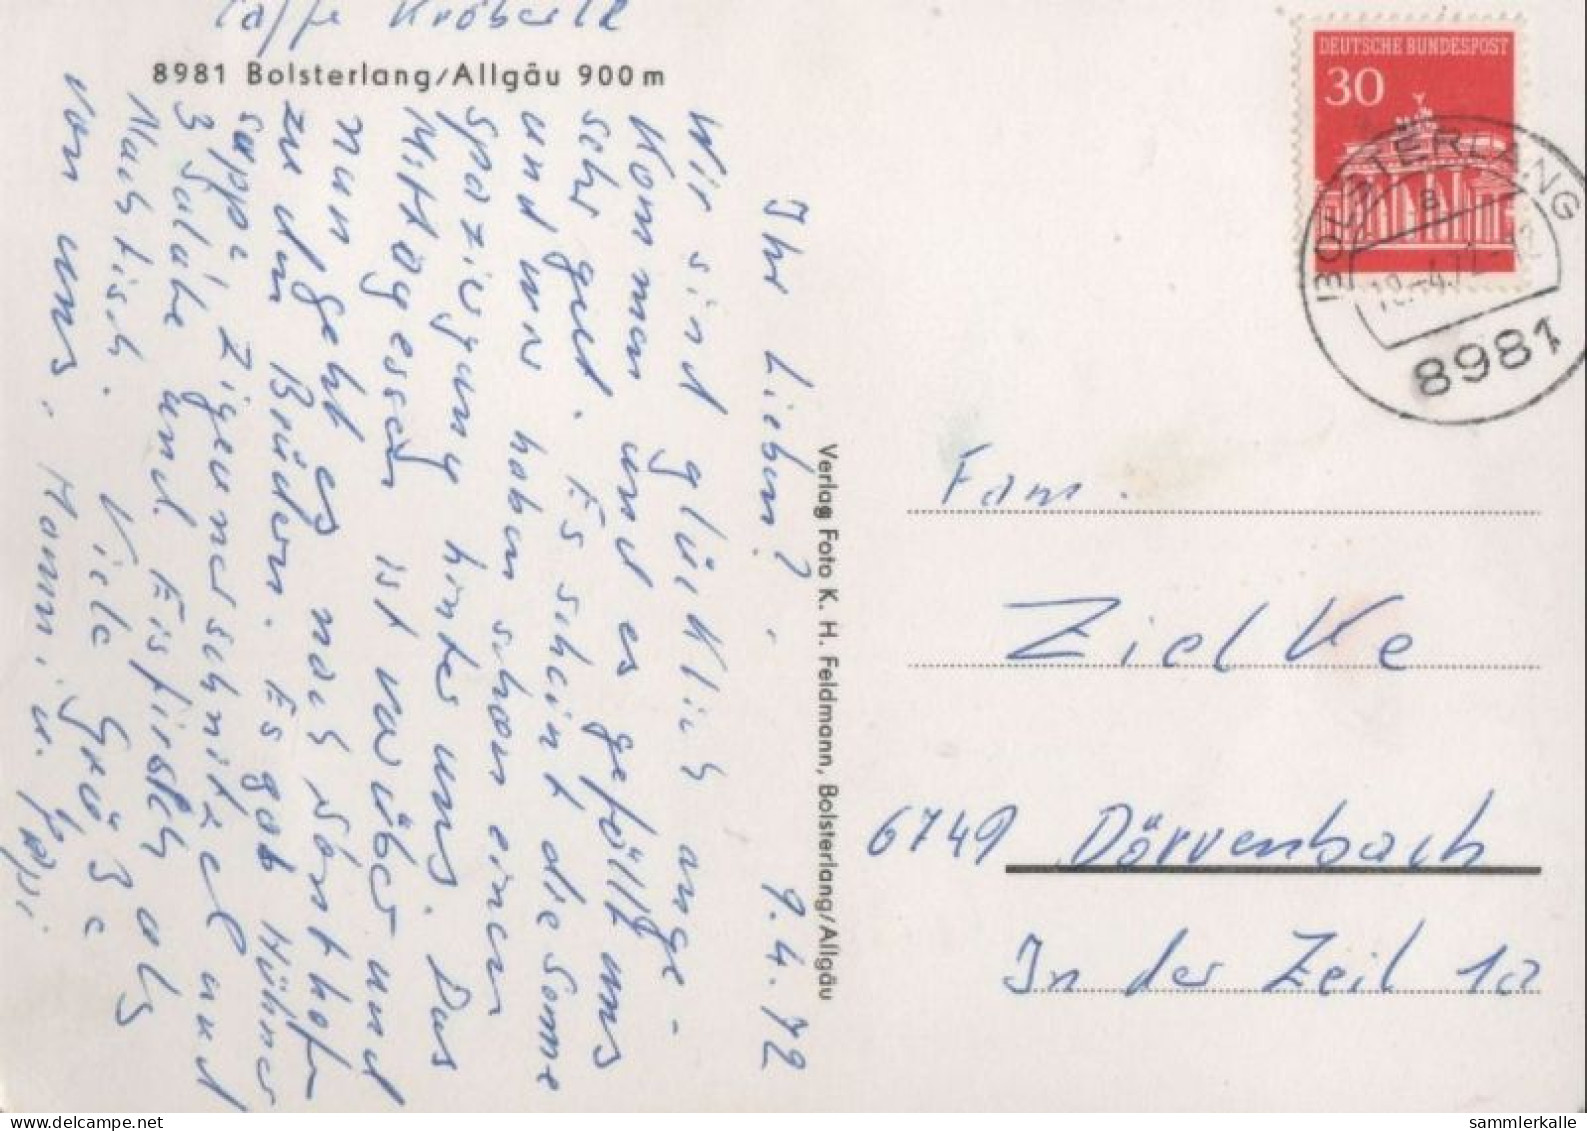 Caffe Kröberle
8981 Bolsterlang/Allgäu 900 m
9.4.72
Ihr Lieben!
Wir sind glücklich ange-
kommen und es gefällt uns
sehr gut. Es scheint die Sonne
und wir haben schon einen
Spaziergang hinter uns. Das
Mittagessen ist vorüber und
nun geht es nach Sonthofen
zu den Brüdern. Es gab Hühner
suppe, Zigeunerschnitzel und
3 Salate und Eisfirsich als
Nachtisch. Viele Grüße
von uns, Mamm. u. Pappi
Verlag Foto K. H. Feldmann, Bolsterlang/Allgäu
DEUTSCHE BUNDESPOST
30
BOLSTERLANG
a
10.-4.72-12
8981
Fam.
Zielke
6749 Dörrenbach
In der Zeil 1a
sammlerkalle